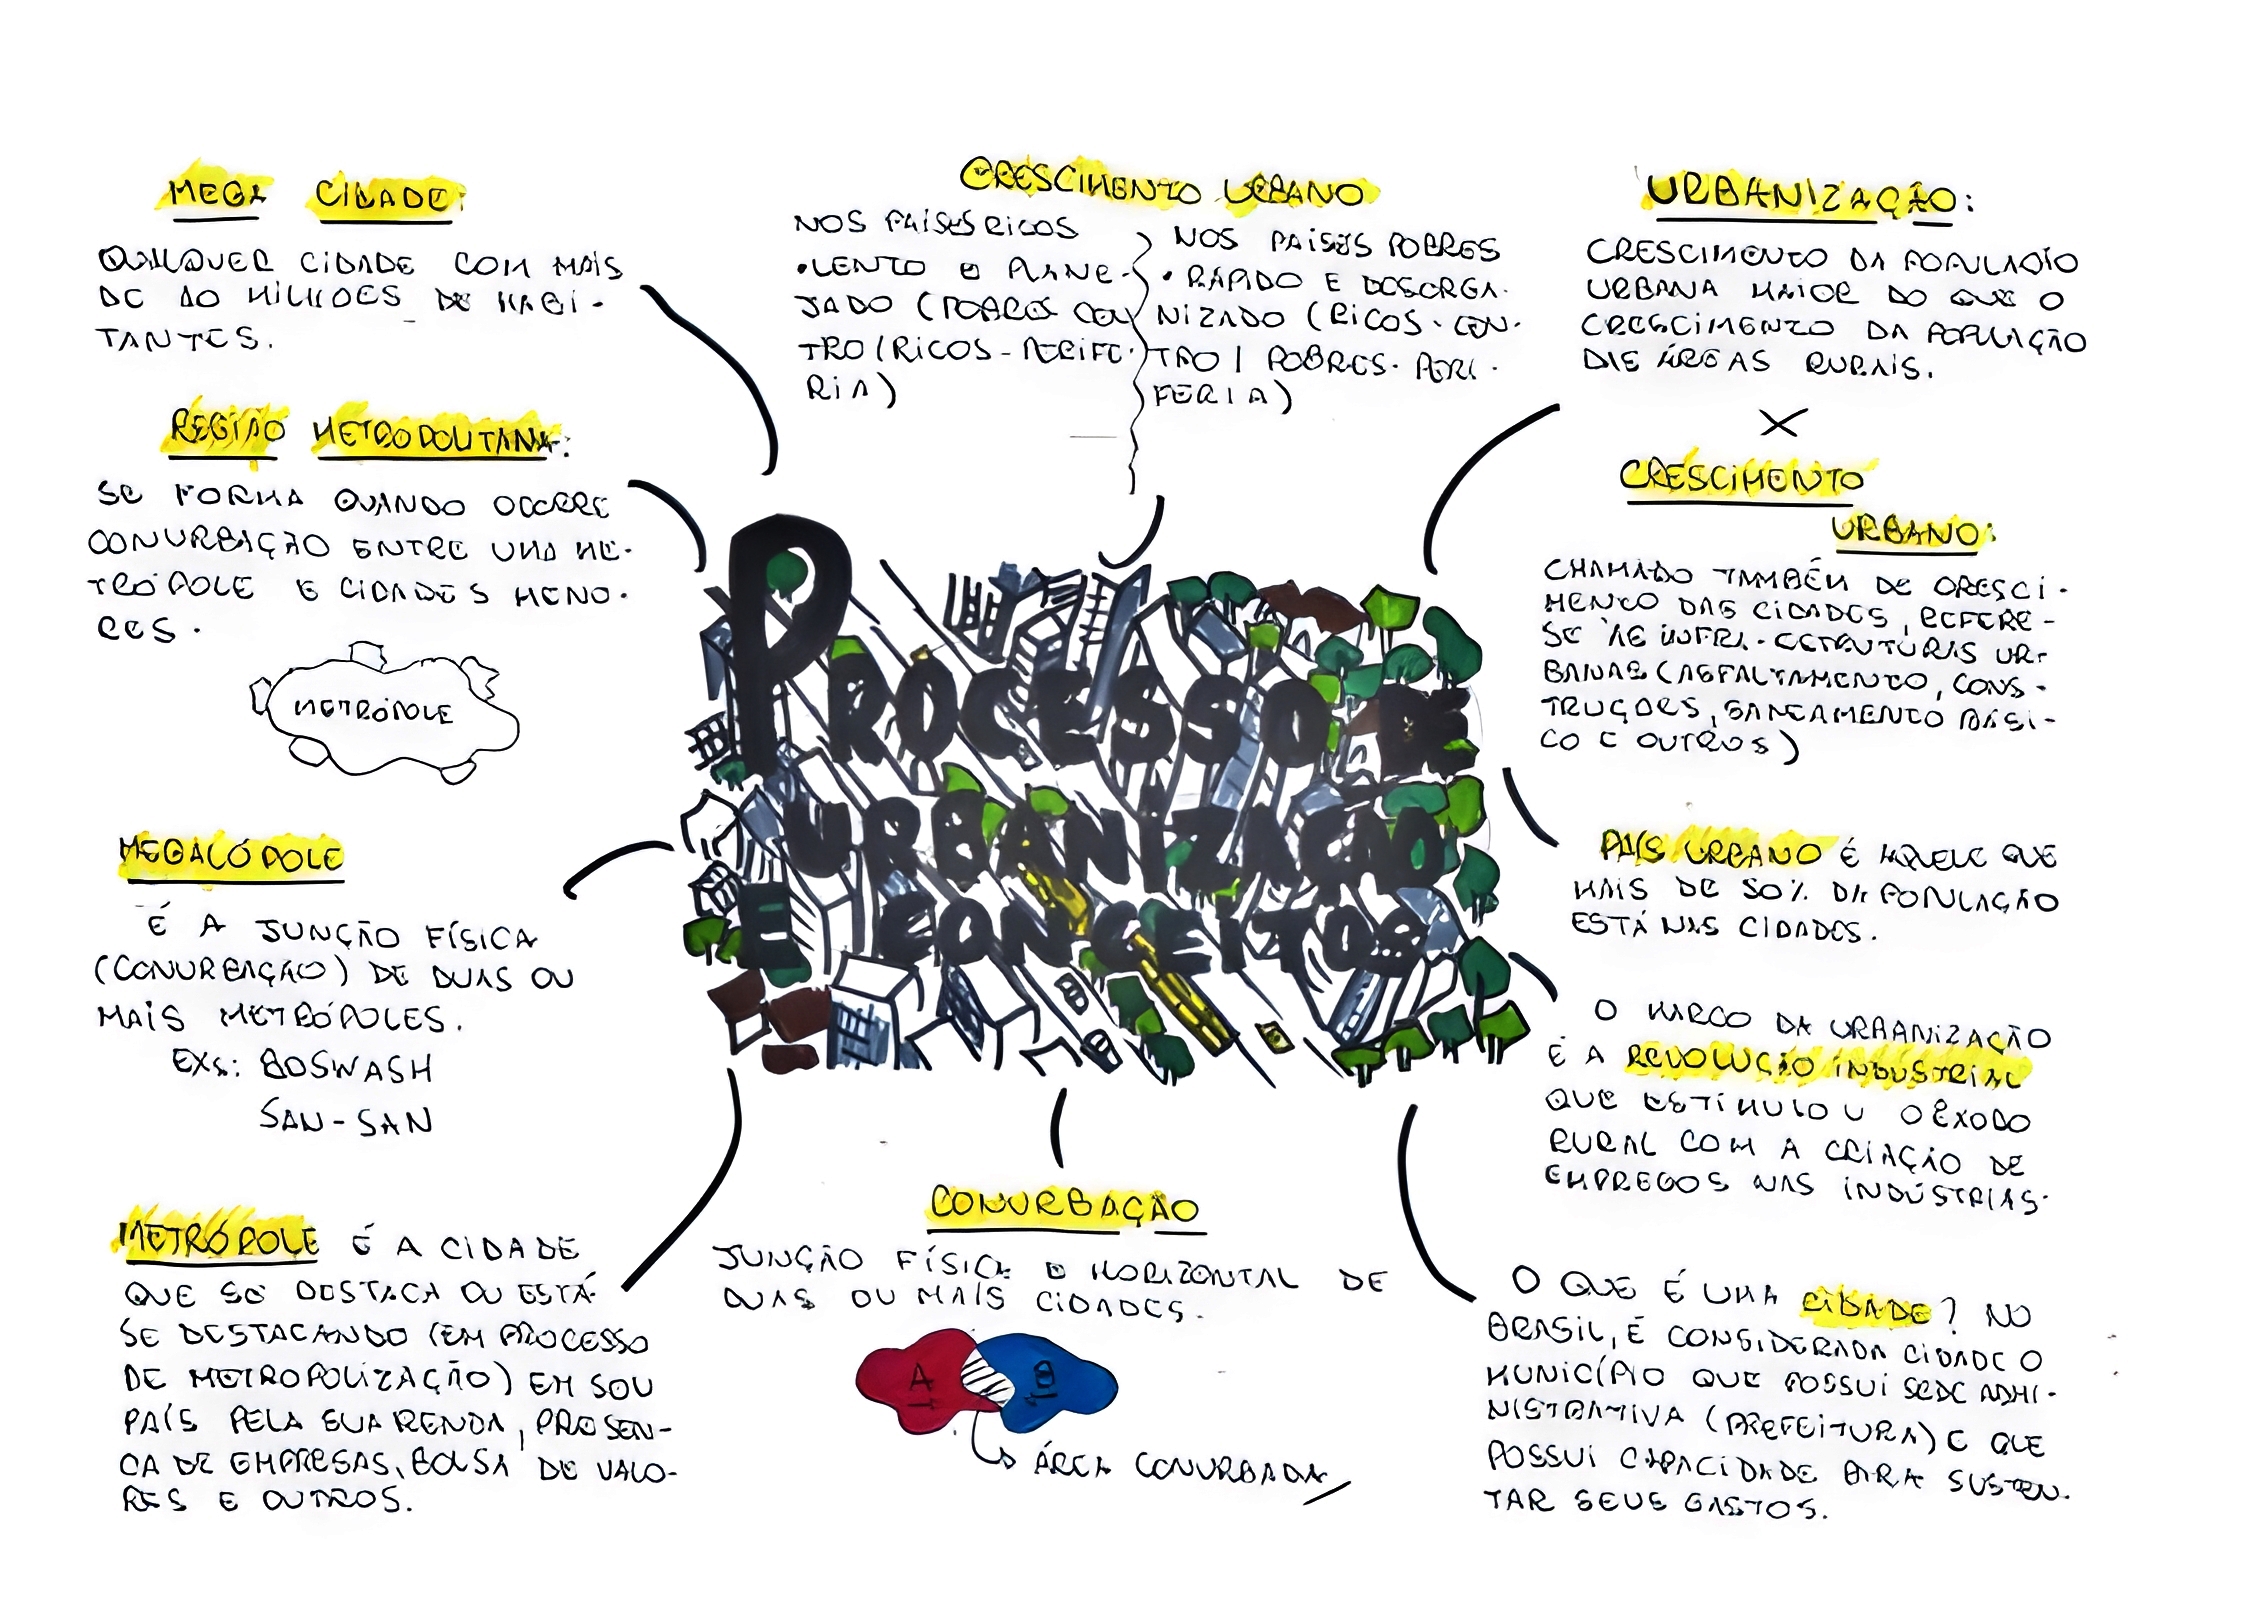 MEGA CIDADE:
QUALQUER CIDADE COM MAIS
DE 10 MILHÕES DE HABI-
TANTES.
REGIÃO METROPOLITANA:
SE FORMA QUANDO OCORRE
CONURBAÇÃO ENTRE UMA ME-
TRÓPOLE E CIDADES MENO-
RES.
METRÓPOLE
MEGALÓPOLE
É A JUNÇÃO FÍSICA
(CONURBAÇÃO) DE DUAS OU
MAIS METRÓPOLES.
EXS: BOSWASH
SAN-SAN
METRÓPOLE É A CIDADE
QUE SE DESTACA OU ESTÁ
SE DESTACANDO (EM PROCESSO
DE METROPOLIZAÇÃO) EM SOU
PAÍS PELA SUA RENDA, PRESEN-
CA DE EMPRESAS, BOLSA DE VALO-
RES E OUTROS.
CRESCIMENTO URBANO
NOS PAÍSES RICOS
•LENTO E PLANE-
JADO (POBRES CEN
TRO/RICOS-PERIFE-
RIA)
NOS PAÍSES POBRES
•RÁPIDO E DESORGA-
NIZADO (RICOS-CEN-
TRO | POBRES-PERI-
FERIA)
PROCESSO DE
URBANIZAÇÃO
E CONCEITOS
CONURBAÇÃO
JUNÇÃO FÍSICA E HORIZONTAL DE
DUAS OU MAIS CIDADES.
A B
ÁREA CONURBADA
URBANIZAÇÃO:
CRESCIMENTO DA POPULAÇÃO
URBANA MAIOR DO QUE O
CRESCIMENTO DA POPULAÇÃO
DAS ÁREAS RURAIS.
X
CRESCIMENTO
URBANO:
CHAMADO TAMBÉM DE CRESCI-
MENTO DAS CIDADES, REFERE-
SE ÀS INFRA-ESTRUTURAS UR-
BANAS (ASFALTAMENTO, CONS-
TRUÇOES, SANEAMENTO BÁSI-
CO E OUTROS)
PAÍS URBANO É AQUELE QUE
MAIS DE 50% DA POPULAÇÃO
ESTÁ NAS CIDADES.
O MARCO DA URBANIZAÇÃO
É A REVOLUÇÃO INDUSTRIAL
QUE ESTIMULOU O ÊXODO
RURAL COM A CRIAÇÃO DE
EMPREGOS NAS INDÚSTRIAS.
O QUE É UMA CIDADE? NO
BRASIL, É CONSIDERADA CIDADE O
MUNICÍPIO QUE POSSUI SEDE ADMI-
NISTRATIVA (PREFEITURA) E QUE
POSSUI CAPACIDADE PARA SUSTEN-
TAR SEUS GASTOS.